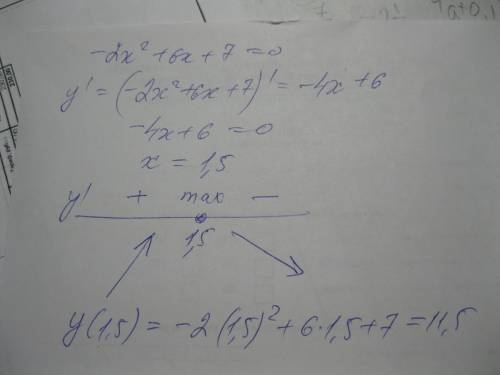 -2x² + 6x + 7 = 0
y' = (-2x² + 6x + 7)' = -4x + 6
-4x + 6 = 0
x = 1,5
y' + max -
1,5
y(1,5) = -2(1,5)² + 6·1,5 + 7 = 11,5